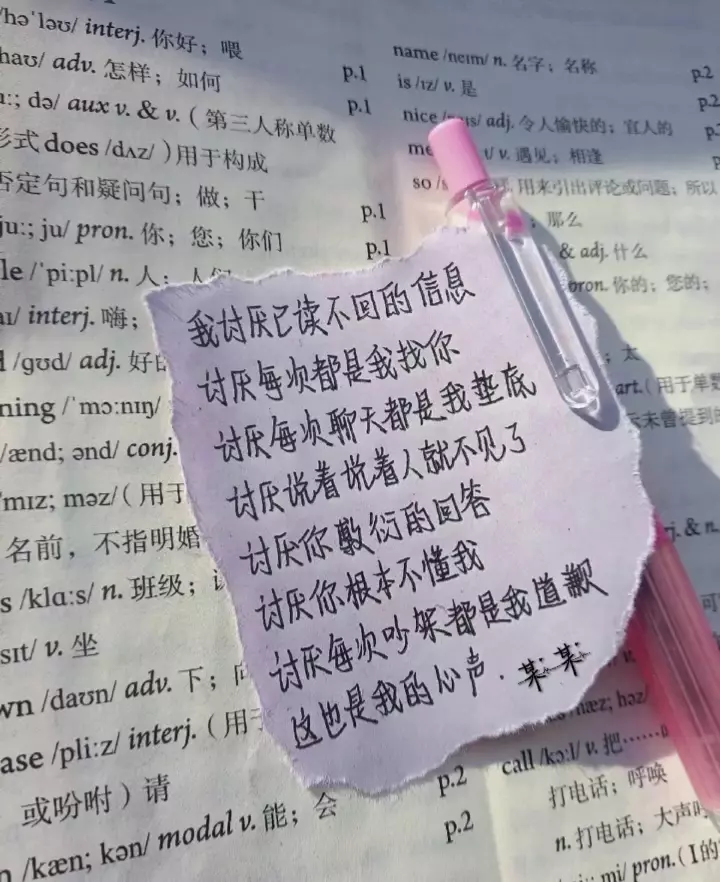 /hə'ləʊ/ interj. 你好；喂
haʊ/ adv. 怎样；如何
p.1
uː; də/ aux v. & v.（第三人称单数
p.1
形式 does /dʌz/）用于构成
否定句和疑问句；做；干
p.1
juː; ju/ pron. 你；您；你们
p.1
le /'piːpl/ n. 人；人们
aɪ/ interj. 嗨；
/ɡʊd/ adj. 好的
ning /'mɔːnɪŋ/
/ænd; ənd/ conj.
mɪz; məz/（用于
名前，不指明婚
s /klɑːs/ n. 班级；
sɪt/ v. 坐
wn /daʊn/ adv. 下；向
ase /pliːz/ interj.（用于
或吩咐）请
p.2
n /kæn; kən/ modal v. 能；会
p.2
name /neɪm/ n. 名字；名称
p.2
is /ɪz/ v. 是
p.2
nice /naɪs/ adj. 令人愉快的；宜人的
me v. 遇见；相逢
so /s 用来引出评论或问题；所以
；那么
& adj. 什么
pron. 你的；您的；
；太
art.（用于单数
未曾提到的
我讨厌已读不回的信息
讨厌每次都是我找你
讨厌每次聊天都是我垫底
讨厌说着说着人就不见了
讨厌你敷衍的回答
讨厌你根本不懂我
讨厌每次吵架都是我道歉
这也是我的心声．某某
j. & n.
hæz; həz/
call /kɔːl/ v. 把……叫
打电话；呼唤
n. 打电话；大声
mi/ pron.（I的